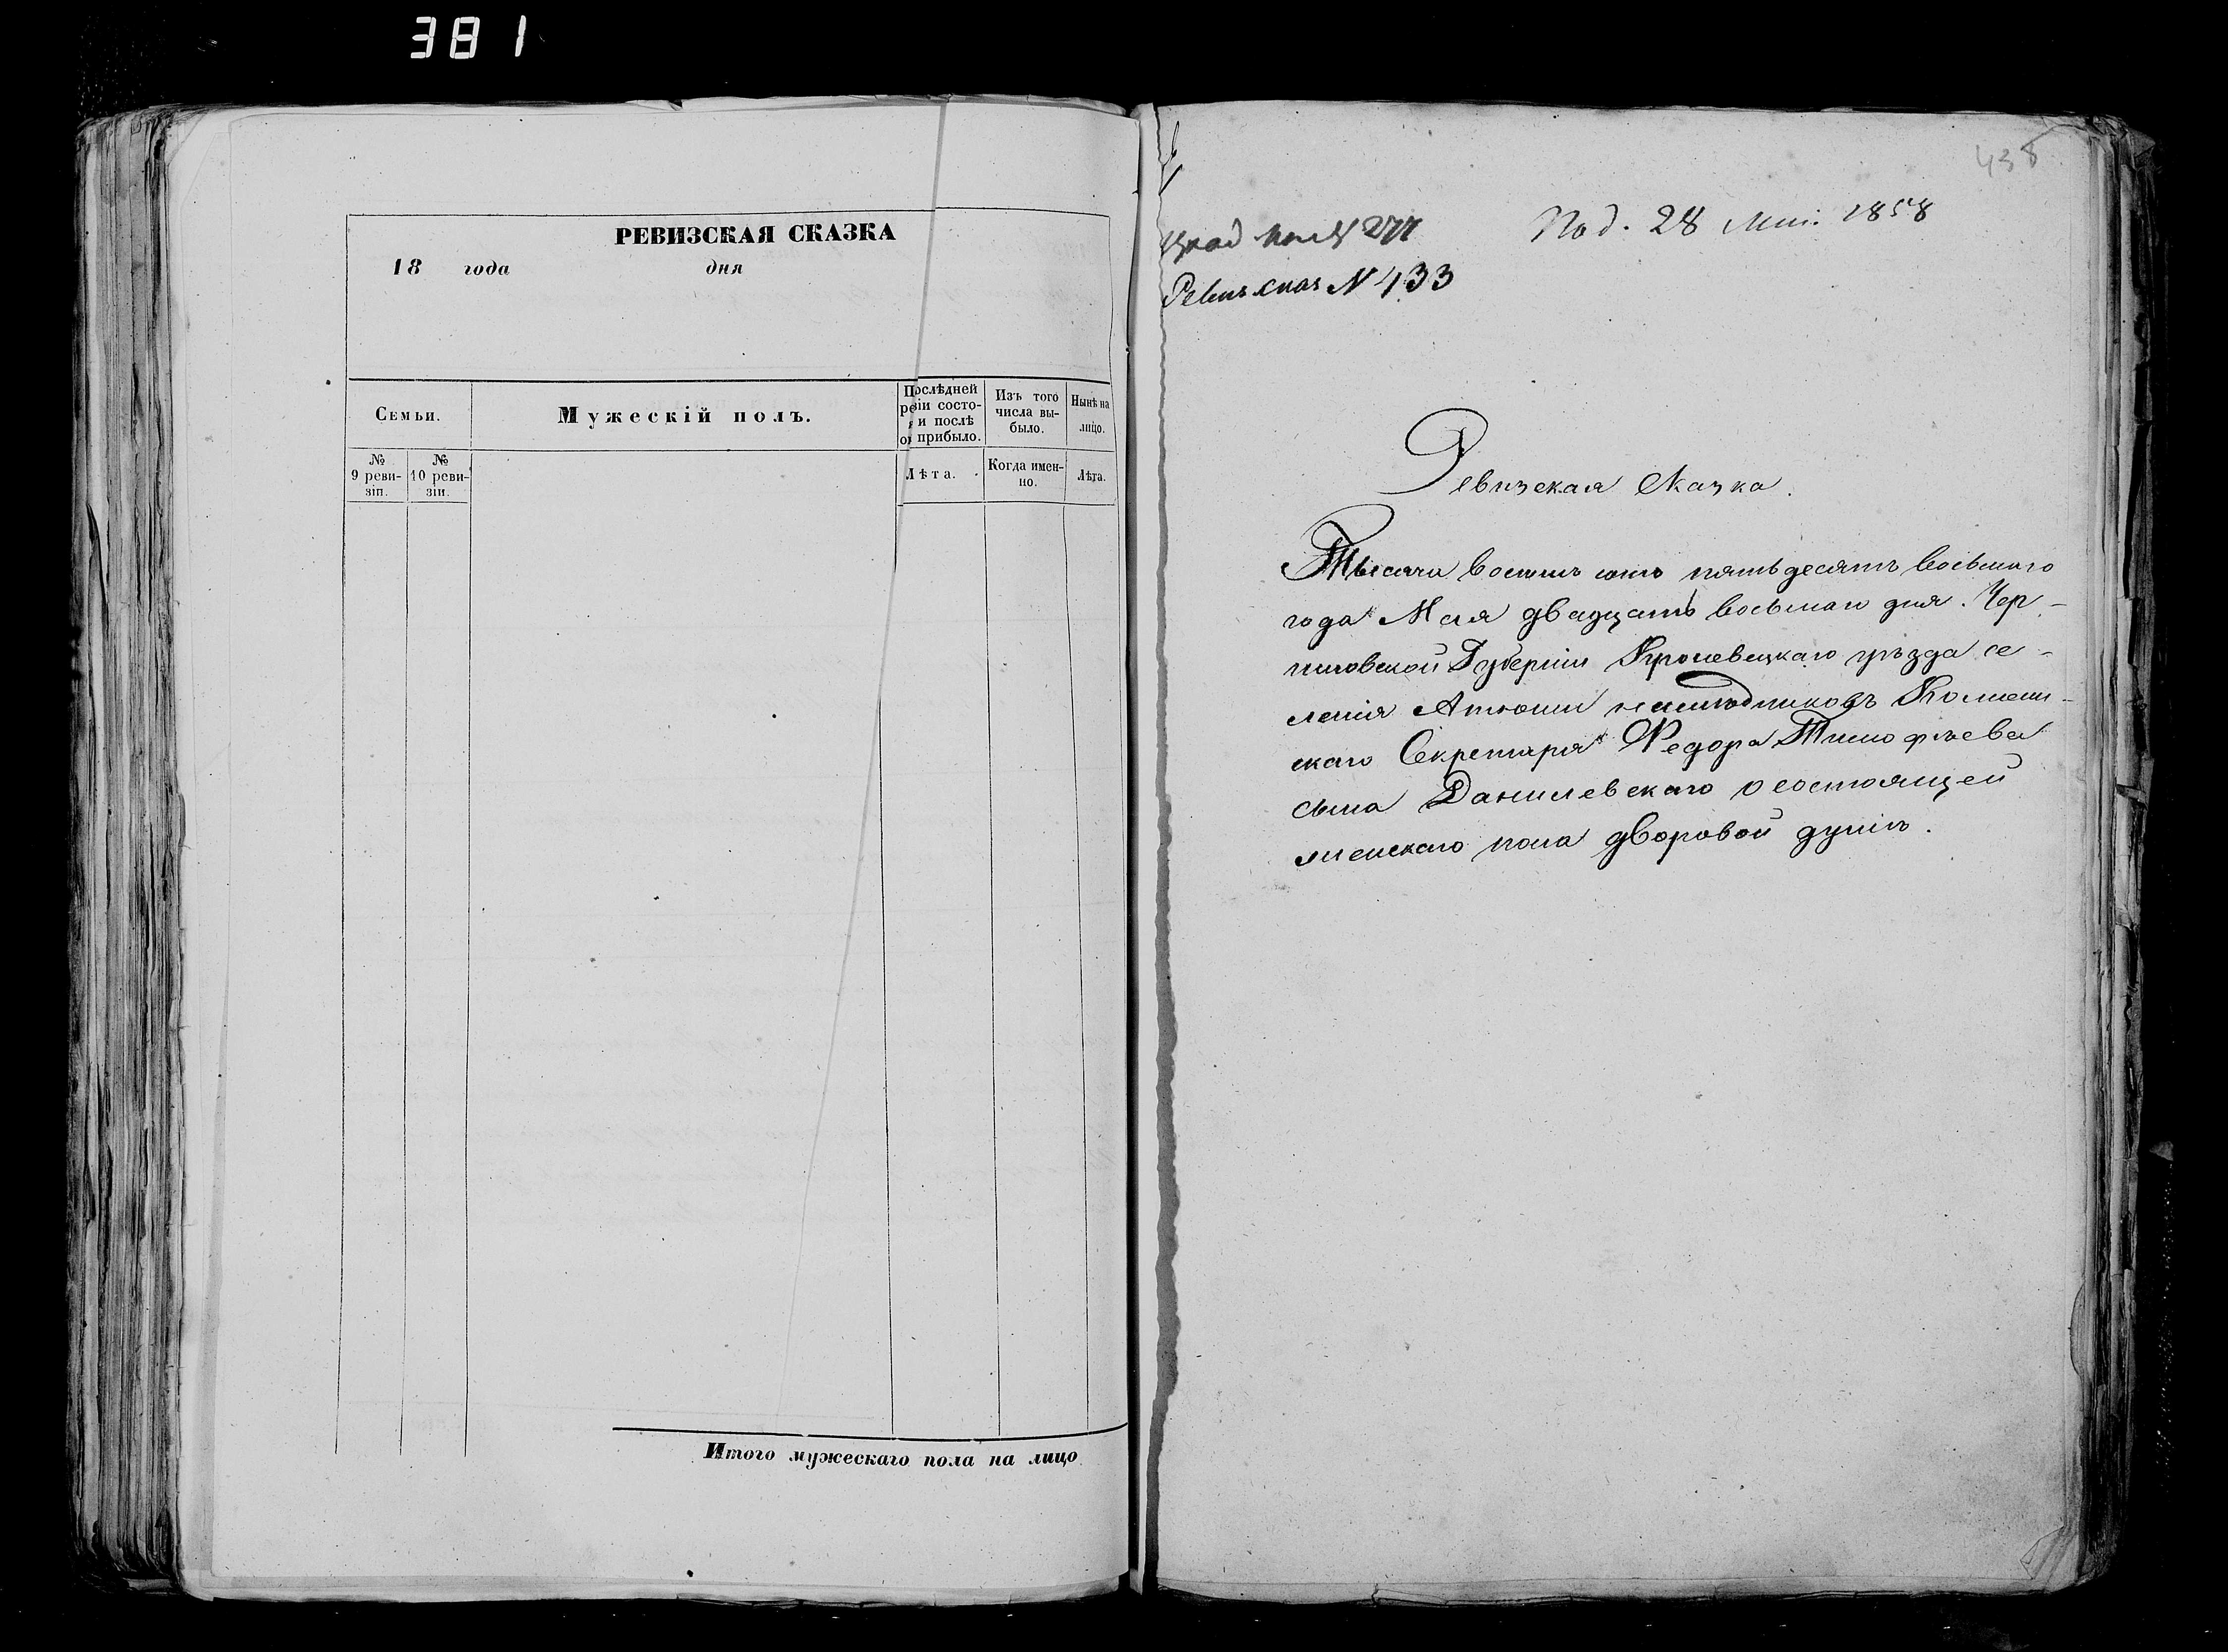 381
РЕВИЗСКАЯ СКАЗКА
18 года дня
Семьи.
Мужескій полъ.
Послѣдней
ре зіи состо-
я и послѣ
о прибыло.
Изъ того
числа вы-
было.
Нынѣ на
лицо.
№
9 реви-
зіи.
№
10 реви-
зіи.
Лѣта.
Когда имен-
но.
Лѣта.
Итого мужескаго пола на лицо
438
277
Под. 28 Маія 1858
Ревиз. сказ N 433
Ревизская Сказка.
Тысяча восемь сотъ пятьдесятъ восьмаго
года Мая двадцать восьмаго дня. Чер-
ниговской Губерніи Кролевецкаго уѣзда се-
ленія Атюши наслѣдниковъ
скаго Секретаря Федора Тимофѣева
сына Данилевскаго о состоящей
женскаго пола дворовой душѣ.